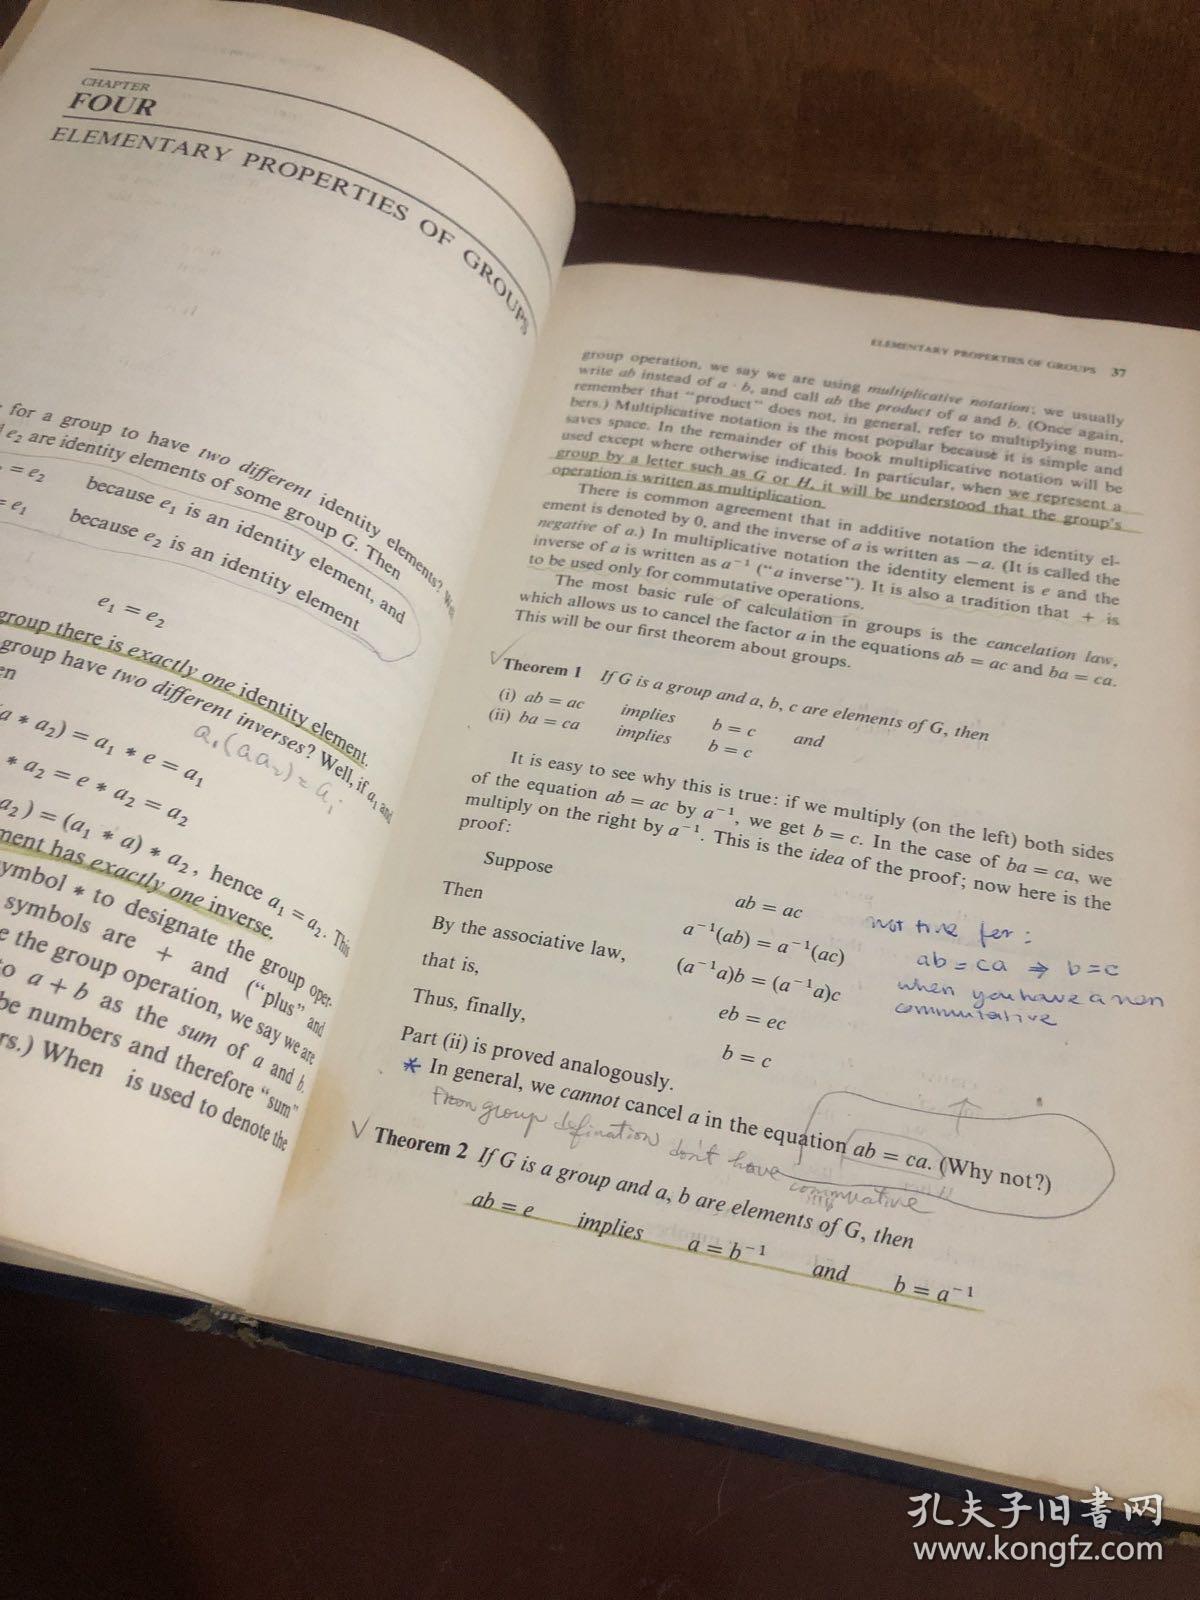 CHAPTER
FOUR
ELEMENTARY PROPERTIES OF GROUPS
for a group to have two different identity elements? Well
e₂ are identity elements of some group G. Then
= e₂ because e₁ is an identity element, and
= e₁ because e₂ is an identity element
e₁ = e₂
group there is exactly one identity element.
group have two different inverses? Well, if a₁ and
a * a₂) = a₁ * e = a₁
a₁(aa₂) = a₁
* a₂ = e * a₂ = a₂
a₂) = (a₁ * a) * a₂, hence a₁ = a₂. This
ment has exactly one inverse.
symbol * to designate the group oper-
symbols are + and ("plus" and
e the group operation, we say we are
to a + b as the sum of a and b.
be numbers and therefore "sum"
rs.) When is used to denote the
ELEMENTARY PROPERTIES OF GROUPS 37
group operation, we say we are using multiplicative notation; we usually
write ab instead of a · b, and call ab the product of a and b. (Once again,
remember that "product" does not, in general, refer to multiplying num-
bers.) Multiplicative notation is the most popular because it is simple and
saves space. In the remainder of this book multiplicative notation will be
used except where otherwise indicated. In particular, when we represent a
group by a letter such as G or H, it will be understood that the group's
operation is written as multiplication.
There is common agreement that in additive notation the identity el-
ement is denoted by 0, and the inverse of a is written as −a. (It is called the
negative of a.) In multiplicative notation the identity element is e and the
inverse of a is written as a⁻¹ ("a inverse"). It is also a tradition that + is
to be used only for commutative operations.
The most basic rule of calculation in groups is the cancelation law,
which allows us to cancel the factor a in the equations ab = ac and ba = ca.
This will be our first theorem about groups.
Theorem 1 If G is a group and a, b, c are elements of G, then
(i) ab = ac implies b = c and
(ii) ba = ca implies b = c
It is easy to see why this is true: if we multiply (on the left) both sides
of the equation ab = ac by a⁻¹, we get b = c. In the case of ba = ca, we
multiply on the right by a⁻¹. This is the idea of the proof; now here is the
proof:
Suppose ab = ac
Then a⁻¹(ab) = a⁻¹(ac)
By the associative law, (a⁻¹a)b = (a⁻¹a)c
that is, eb = ec
Thus, finally, b = c
not true for:
ab = ca ⇒ b = c
when you have a non
commutative
Part (ii) is proved analogously.
* In general, we cannot cancel a in the equation ab = ca. (Why not?)
From group defination don't have
commuative
Theorem 2 If G is a group and a, b are elements of G, then
ab = e implies a = b⁻¹ and b = a⁻¹
孔夫子旧书网
www.kongfz.com